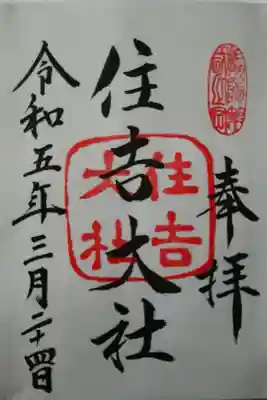 奉拝
住吉大社
住吉大社
令和五年三月二十四日